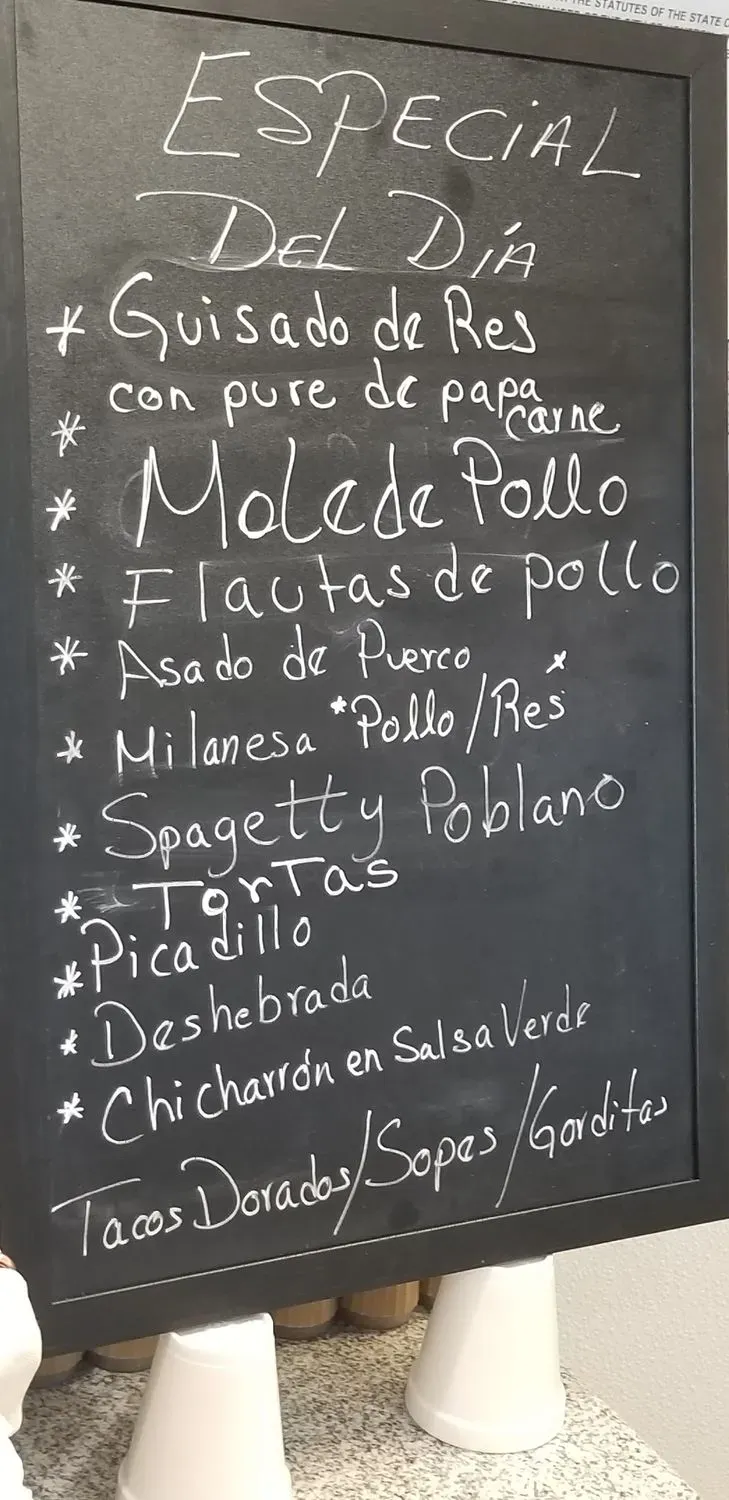 THE STATUTES OF THE STATE
ESPECiAL
DEL DÍA
* Guisado de Res
con pure de papa
* carne
* Mole de Pollo
* Flautas de pollo
* Asado de Puerco
* Milanesa *Pollo/Res*
* Spagetty Poblano
* TorTas
* Picadillo
* Deshebrada
* Chicharrón en Salsa Verde
Tacos Dorados/Sopes/Gorditas